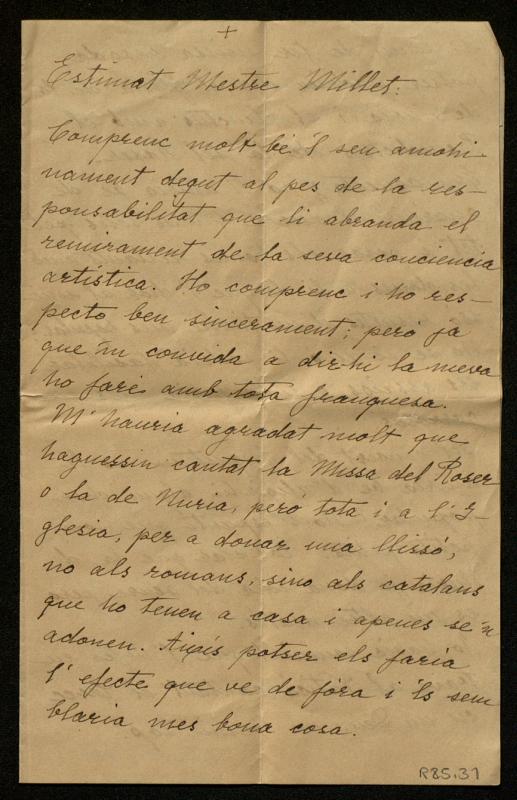 +
Estimat Mestre Millet:
Comprenc molt bé 'l seu amohi-
nament degut al pes de la res-
ponsabilitat que li abranda el
remirament de la seva conciencia
artística. Ho comprenc i ho res-
pecto ben sincerament; peró ja
que 'm convida a dir-hi la meva
ho faré amb tota franquesa.
M'hauria agradat molt que
haguessin cantat la Missa del Roser
o la de Nuria, peró tota i a l'I-
glesia, per a donar una llissó,
no als romans, sino als catalans
que ho tenen a casa i apenes se'n
adonen. Aixís potser els faria
l'efecte que ve de fóra i 'ls sem
blaria mes bona cosa.
R85.31